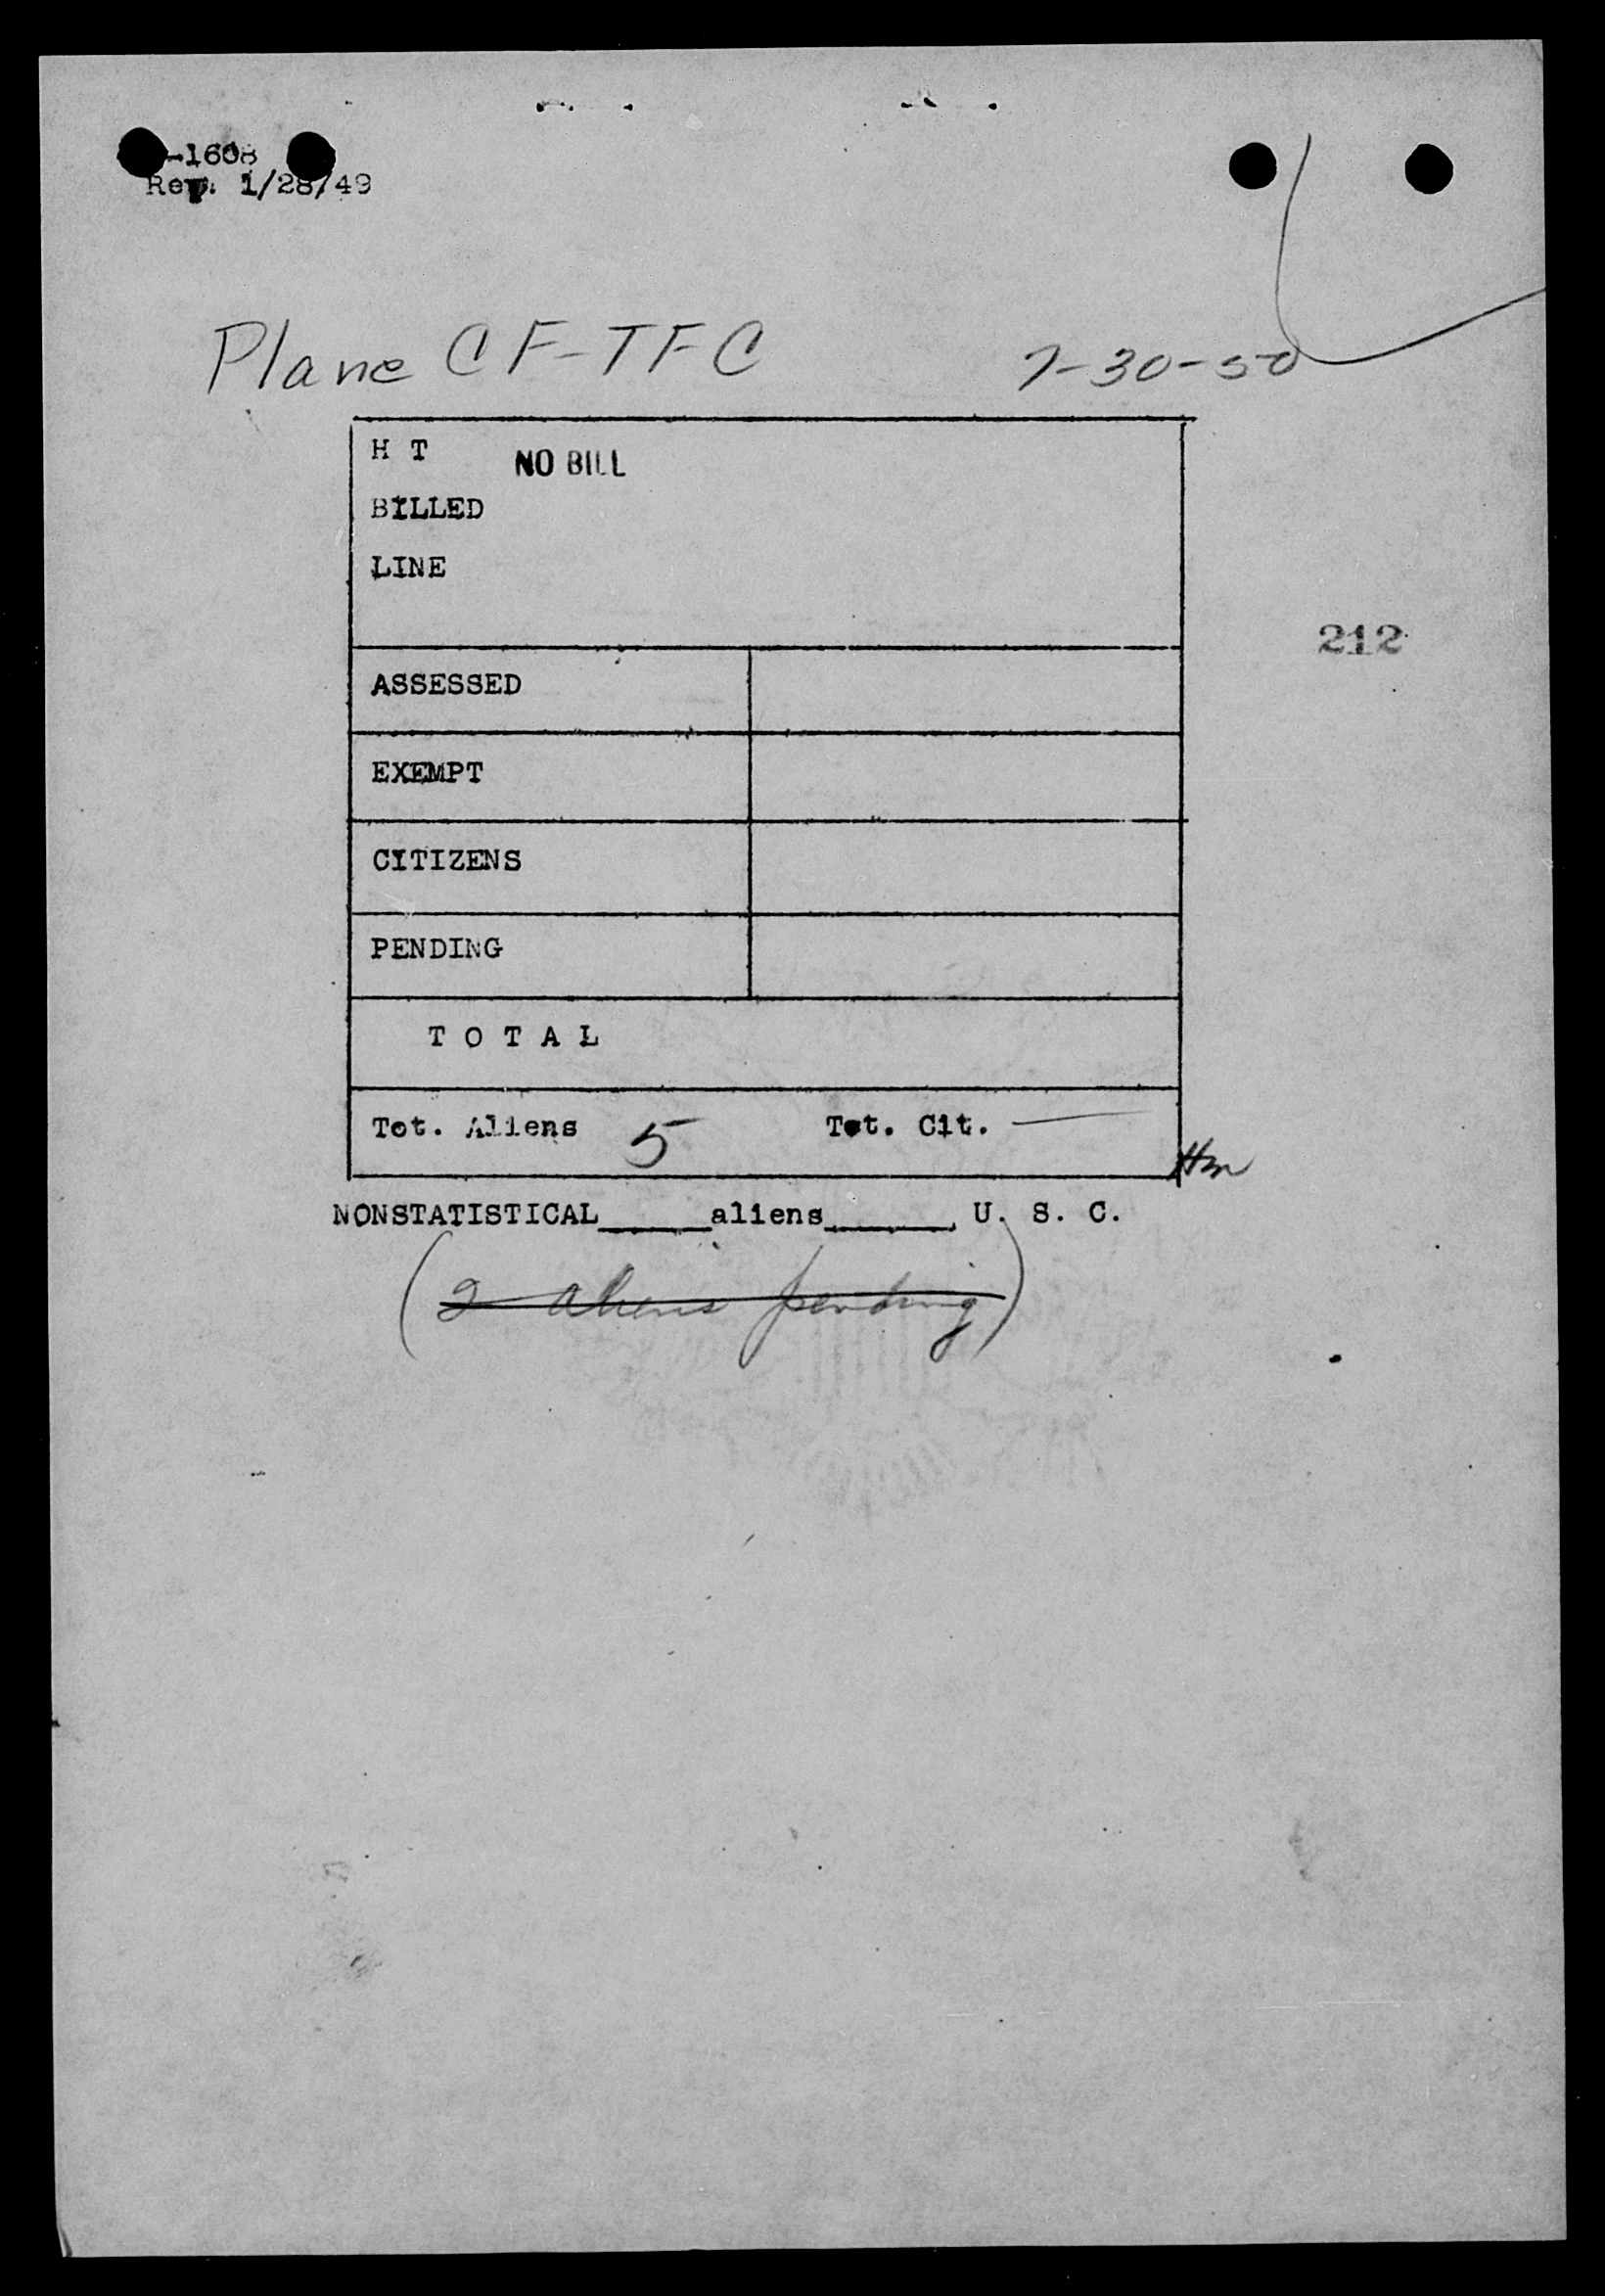 -1608
Rev. 1/28/49
Plane CF-TFC 7-30-50
H T NO BILL
BILLED
LINE
212
ASSESSED
EXEMPT
CITIZENS
PENDING
T O T A L
Tot. Aliens 5 Tot. Cit. —
NONSTATISTICAL______aliens_______, U. S. C.
(2 aliens pending)